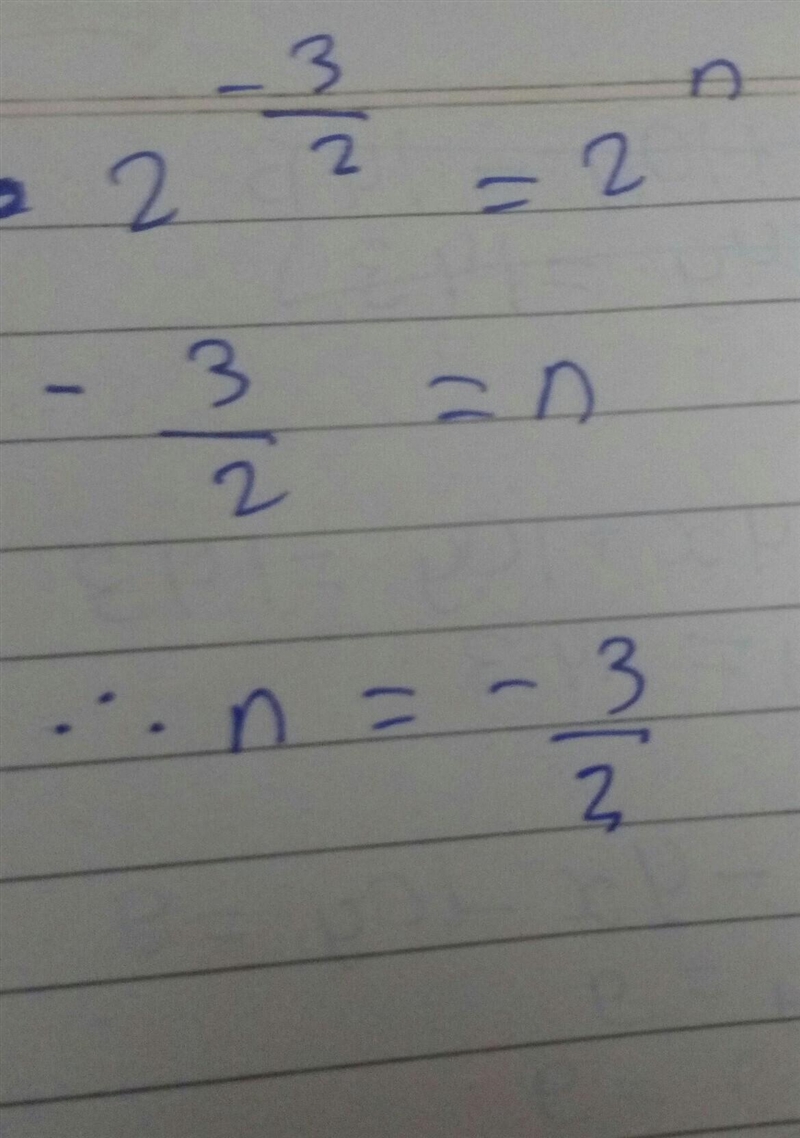 2^{-\frac{3}{2}} = 2^n
-\frac{3}{2} = n
∴ n = -\frac{3}{2}